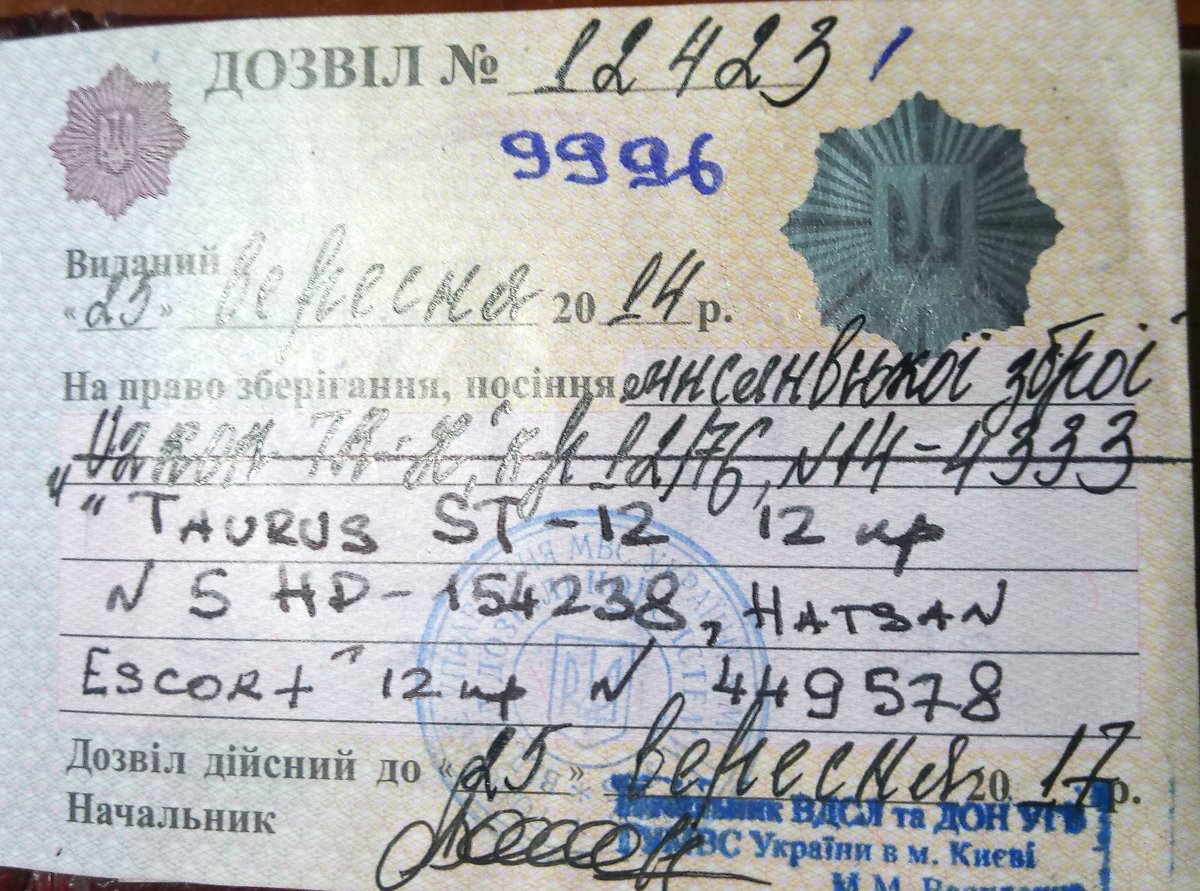 ДОЗВІЛ № 12423
9996
Виданий
«23» вересня 20 14 р.
На право зберігання, носіння мисливської зброї
к. 12/76, N14-4333
" TAURUS ST-12 12 кр
N S HD-154238, HATSAN
ESCORT " 12 кр N 449578
Дозвіл дійсний до «25» вересня 20 17 р.
Начальник
Начальник ВДСЛ та ДОН УГБ
ГУМВС України в м. Києві
М.М.